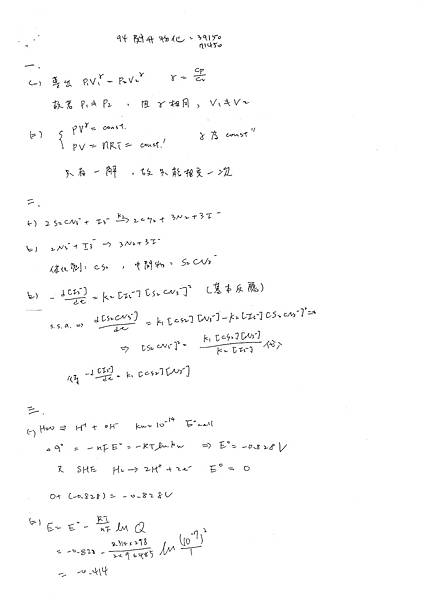 94
39150
71450
一、
(一) P₁V₁^γ = P₂V₂^γ γ = Cp/Cv
故若 P₁≠P₂ , 且 γ 相同, V₁≠V₂
(二) { PV^γ = const. γ 為 const"
PV = nRT = const.'
只有一解, 故只能相交一次
二、
(一) 2S₂CN₃⁻ + I₃⁻ →k₂ 3N₂ + 3I⁻
(二) 2N₃⁻ + I₃⁻ → 3N₂ + 3I⁻
催化劑: CS₂ , 中間物: S₂CN₃⁻
(三) -d[I₃⁻]/dt = k₂[I₃⁻][S₂CN₃⁻]² (基本反應)
s.s.a. ⇒ d[S₂CN₃⁻]/dt = k₁[CS₂][N₃⁻] - k₂[I₃⁻][S₂CN₃⁻]² = 0
⇒ [S₂CN₃⁻]² = k₁[CS₂][N₃⁻]/k₂[I₃⁻]
得 -d[I₃⁻]/dt = k₁[CS₂][N₃⁻]
三、
(一) H₂O ⇌ H⁺ + OH⁻ Kw = 10⁻¹⁴ E°cell
Δg° = -nFE° = -RT ln Kw ⇒ E° = -0.828V
又 SHE H₂ → 2H⁺ + 2e⁻ E° = 0
0 + (-0.828) = -0.828V
(二) E = E° - RT/nF ln Q
= -0.828 - 8.314×298/2×96485 ln (10⁻⁷)²/1
= -0.414